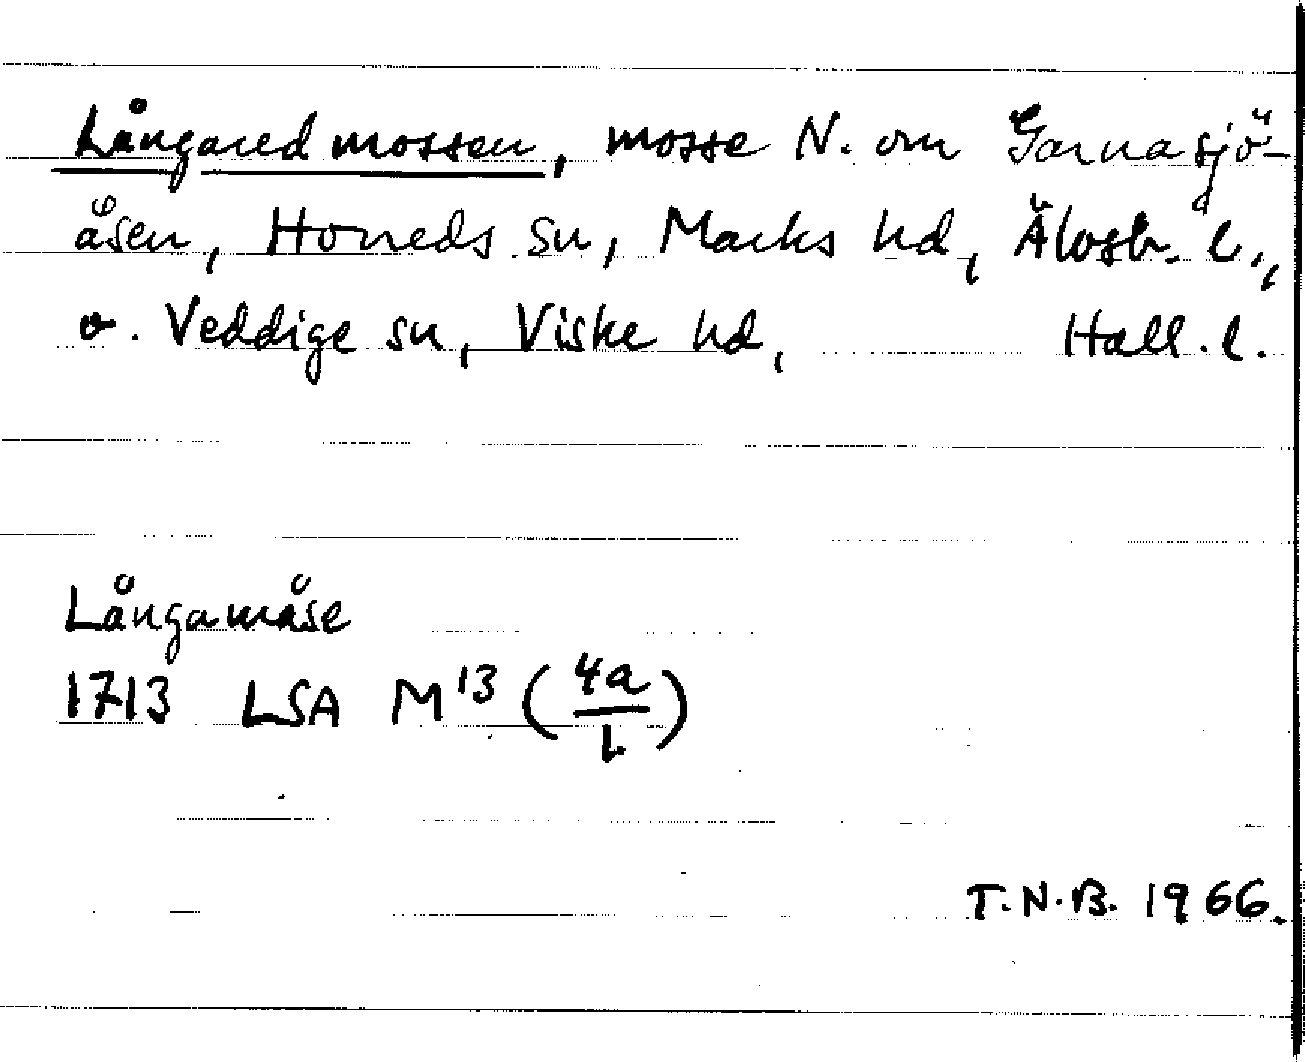 Långaredmossen, mosse N. om Garnasjö-
åsen, Horreds sn, Marks hd, Älvsb. l.,
o. Veddige sn, Viske hd, Hall. l.
Långamåse
1713 LSA M¹³ (4a/L)
T.N.B. 1966.